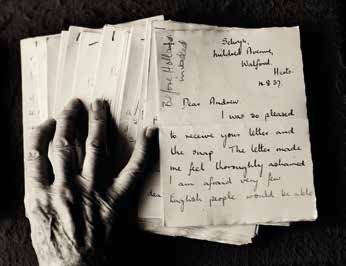 Before Holland
invaded
Selwyn,
Mildred Avenue,
Watford,
Herts.
14.8.37.
Dear Andrew.
I was so pleased
to receive your letter and
the snap. The letter made
me feel thoroughly ashamed
I am afraid very few
English people would be able
dea